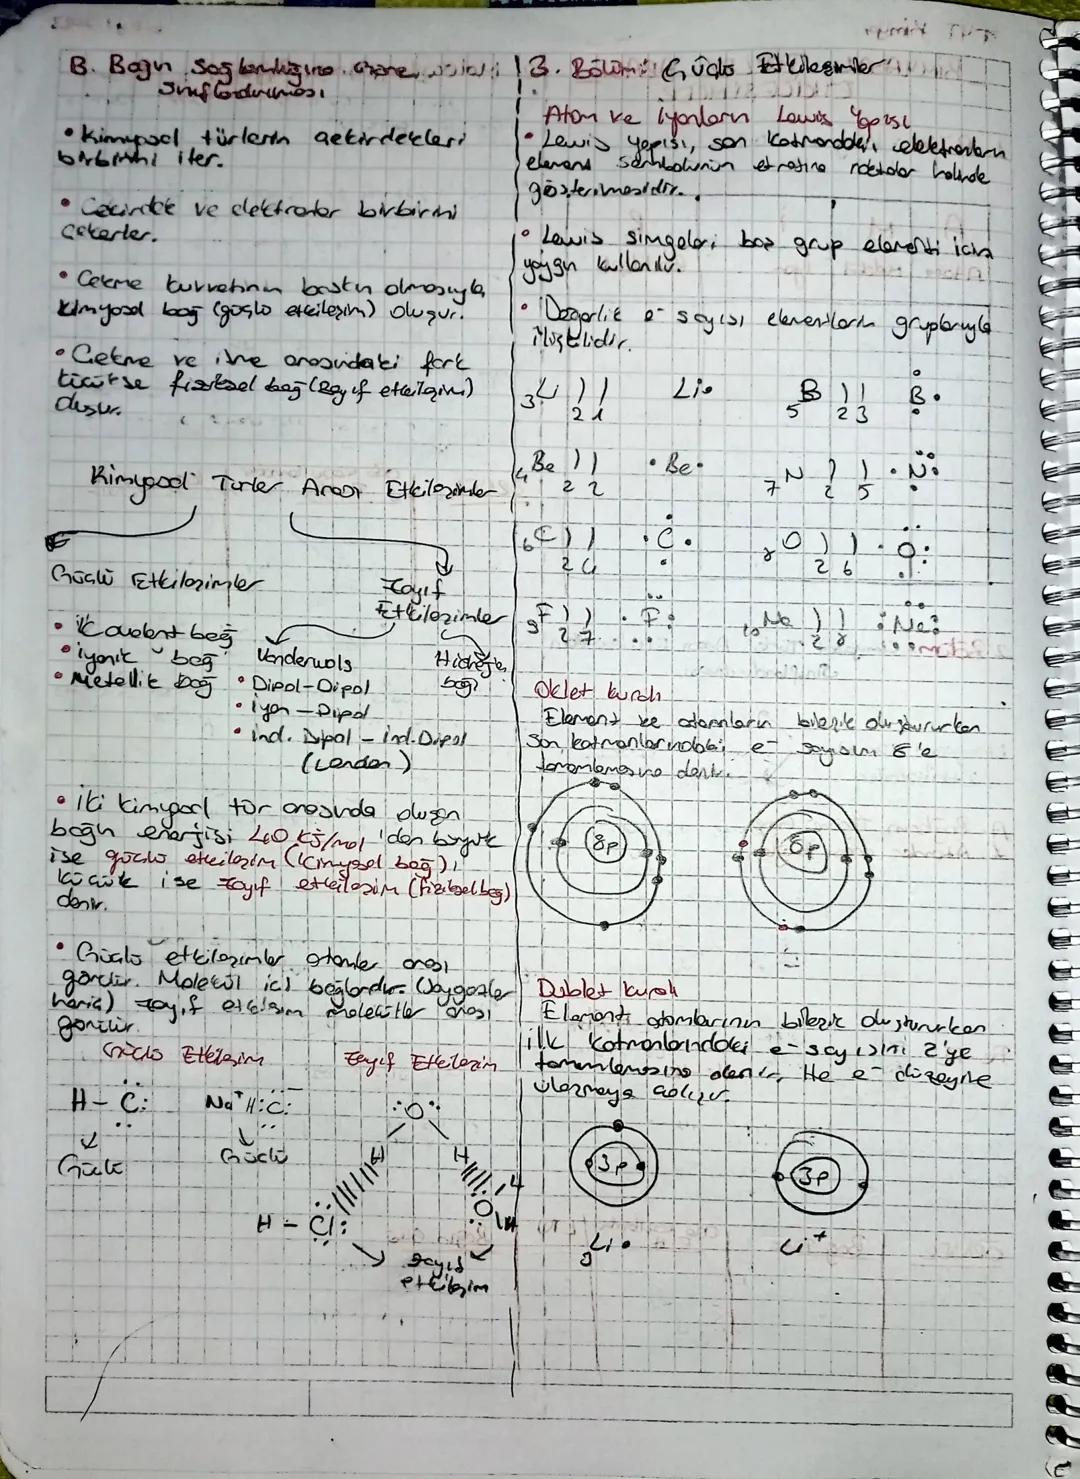 B. Bağın Sağlamlığına Göre
Sınıflandırılması
• Kimyasal türlerin çekirdekleri
birbirini iter.
• Çekirdek ve elektronlar birbirini
çekerler.
• Çekme kuvvetinin baskın olmasıyla
kimyasal bağ (güçlü etkileşim) oluşur.
• Çekme ve itme arasındaki fark
küçükse fiziksel bağ (zayıf etkileşimi)
oluşur.
Kimyasal Türler Arası Etkileşimler
Güçlü Etkileşimler
Zayıf
Etkileşimler
• Kovalent bağ
• İyonik bağ
• Metallik bağ
Vanderwals
• Dipol-Dipol
• İyon - Dipol
• ind. Dipol - ind. Dipol
(London)
Hidrojen
bağı
• İki kimyasal tür arasında oluşan
bağın enerjisi 40 kj/mol 'den büyük
ise güçlü etkileşim (kimyasal bağ),
küçük ise zayıf etkileşim (fiziksel bağ)
denir.
• Güçlü etkileşimler atomlar arası
görülür. Molekül içi bağlardır. (Soygazlar
hariç) zayıf etkileşim moleküller arası
görülür.
Güçlü Etkileşim Zayıf Etkileşim
H - C:
Güçlü
Na+ :C:-
Güçlü
:O:
H H
H - Cl:
O H
zayıf
etkileşim
3. Bölüm: Güçlü Etkileşimler
Atom ve İyonların Lewis Yapısı
• Lewis yapısı, son katmandaki elektronların
element sembolünün etrafına noktalar halinde
gösterilmesidir.
• Lewis simgeleri baş grup elementi için
yaygın kullanılır.
• Değerlik e- sayısı elementlerin gruplarıyla
ilişkilidir.
3Li ) ) 2 1 Li• 5B ) ) 2 3 B•
4Be ) ) 2 2 •Be• 7N ) ) 2 5 •N:
6C ) ) 2 4 •C• 8O ) ) 2 6 •O:
9F ) ) 2 7 •F: 10Ne ) ) 2 8 :Ne:
Oktet kuralı
Element ve atomların bileşik oluştururken
son katmanlarındaki e- sayısını 8'e
tamamlamasına denir.
8p 8p
Dublet kuralı
Element atomlarının bileşik oluştururken
ilk katmanlarındaki e- sayısını 2'ye
tamamlamasına denir. He e- düzeyine
ulaşmaya çalışır.
3p 3p
3Li• Li+